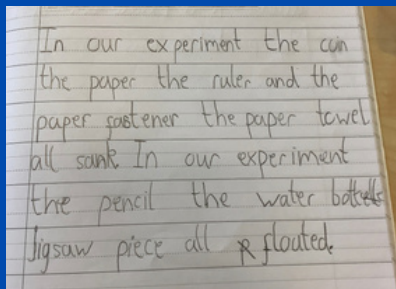 In our experiment the coin
the paper the ruler and the
paper fastener the paper towel
all sank In our experiment
the pencil the water
Jigsaw piece all floated.